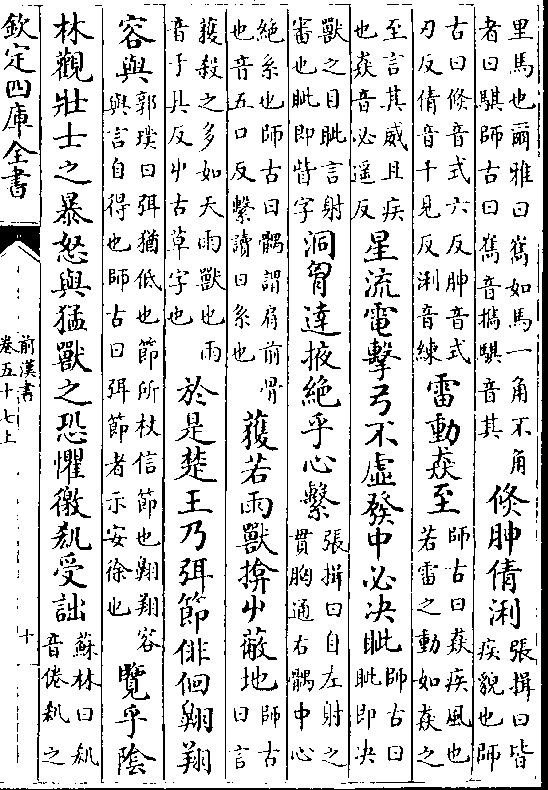 里馬也爾雅曰𩦡如馬一角不角
者曰騏師古曰𩦡音攜騏音其
倏胂倩浰
張揖曰皆
疾貌也師
古曰倏音式六反胂音式
刃反倩音千見反浰音練
雷動猋至
師古曰猋疾風也
若雷之動如猋之
至言其威且疾
也猋音必遥反
星流電擊弓不虛發中必决眦
師古曰
眦即决
獸之目眦言射
審也眦即眥字
洞胷達掖絶乎心繫
張揖曰自左射之
貫胸通右髃中心
絶系也師古曰髃謂肩前骨
也音五口反繫讀曰系也
獲若雨獸揜屮蔽地
師古
曰言
獲殺之多如天雨獸也雨
音于具反屮古草字也
於是楚王乃弭節俳佪翺翔
容與
郭璞曰弭猶低也節所杖信節也翺翔容
與言自得也師古曰弭節者示安徐也
覽乎陰
林觀壯士之暴怒與猛獸之恐懼徼䘑受詘
蘇林曰䘑
音倦䘑之
欽定四庫全書
前漢書
卷五十七上
十